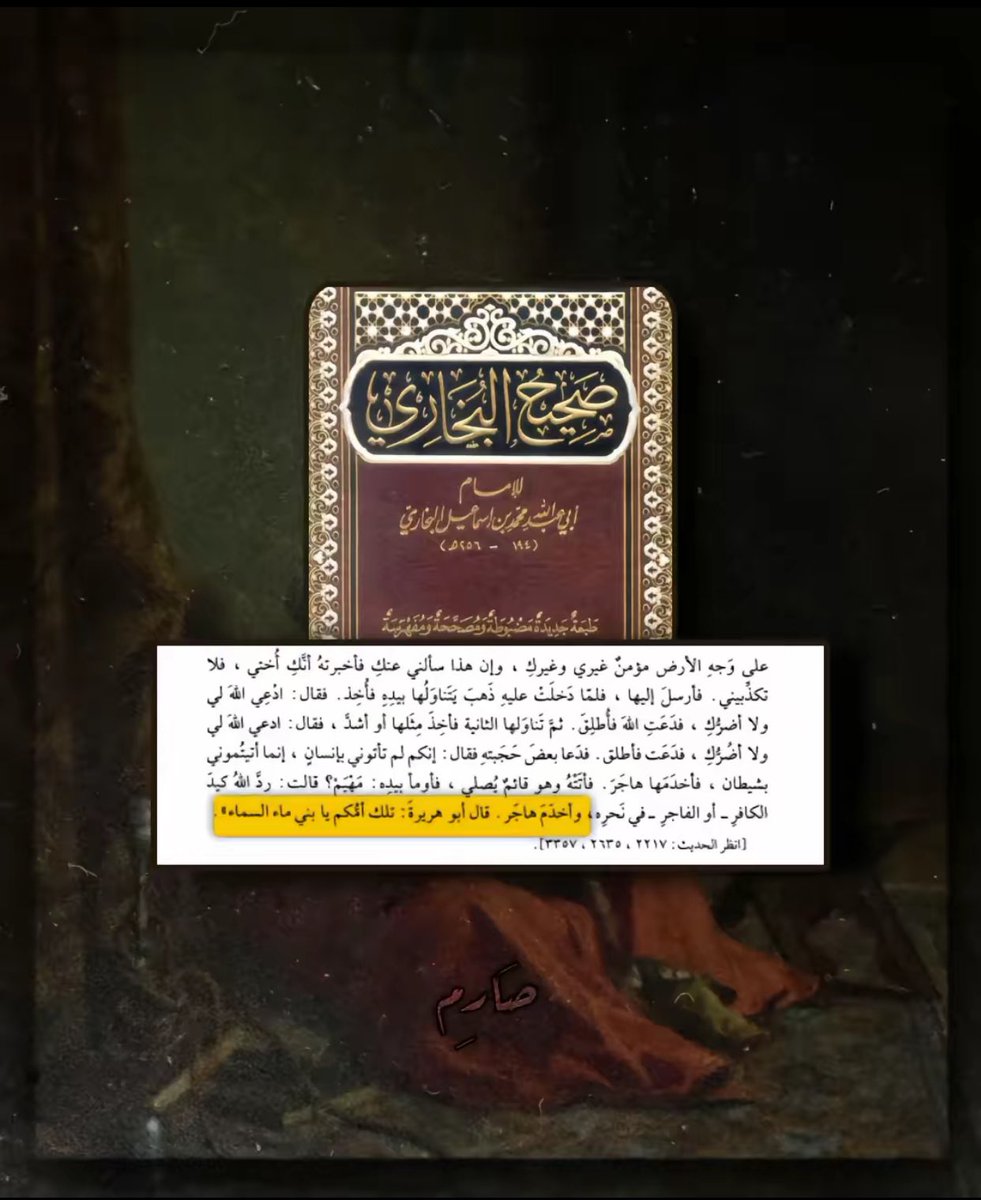 صَحِيحُ البُخَارِيّ
للإمام
أبي عبد الله محمد بن اسماعيل البخاري
(١٩٤ - ٢٥٦هـ)
طَبعَة جَديدَة مَضبُوطَة وَمُصَحَّحَة وَمُفَهرَسَة
على وَجهِ الأرض مؤمنٌ غيري وغيركِ ، وإن هذا سألني عنكِ فأخبرتهُ أنَّكِ أُختي ، فلا
تكذِّبيني. فأرسلَ إليها ، فلمّا دَخلَتْ عليهِ ذَهبَ يَتَناوَلُها بيدِهِ فأُخِذ. فقال: ادْعِي اللهَ لي
ولا أضرُّكِ ، فدَعَتِ اللهَ فأُطلِقَ. ثمَّ تَناوَلها الثانية فأُخِذَ مِثلَها أو أشدَّ ، فقال: ادعي اللهَ لي
ولا أضُرُّكِ ، فدَعَت فأطلق. فدَعا بعضَ حَجَبتهِ فقال: إنكم لم تأتوني بإنسانٍ ، إنما أتيتُموني
بشيطان ، فأخدَمَها هاجَرَ. فأتَتْهُ وهو قائمٌ يُصلي ، فأومأ بيدِه: مَهْيَمْ؟ قالت: ردَّ اللهُ كيدَ
الكافرِ ـ أو الفاجرِ ـ في نَحرِه، وأخدَمَ هاجَر. قال أبو هريرةَ: تلك أمُّكم يا بني ماء السماء» .
[انظر الحديث: ٢٢١٧ ، ٢٦٣٥ ، ٣٣٥٧].
صَارِم